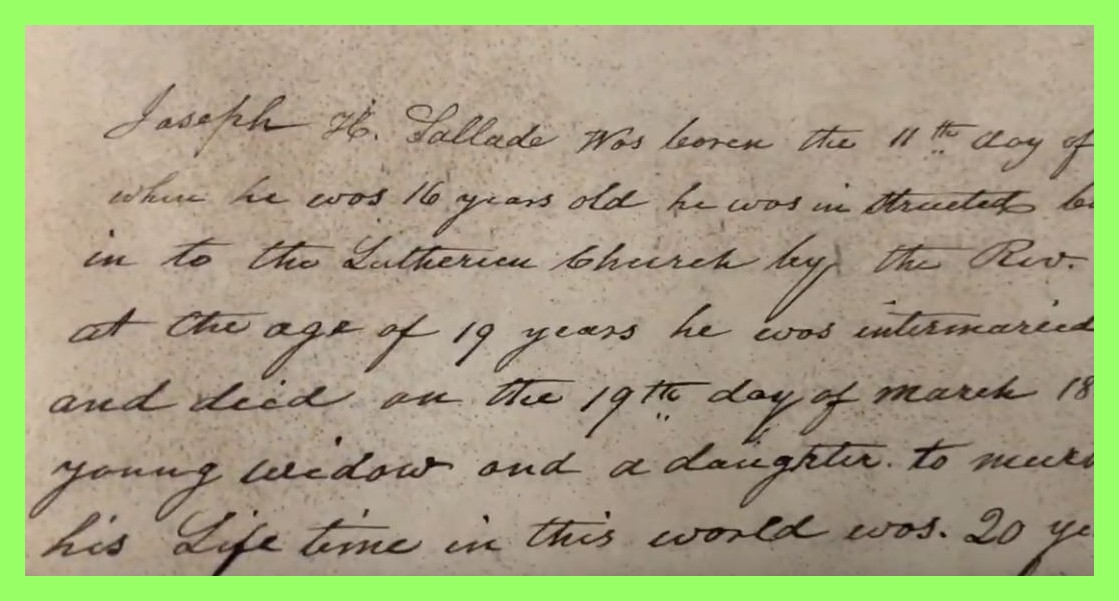 Joseph H. Sallade Was boren the 11th day of
when he was 16 years old he was in structed
in to the Lutherien Church by the Rev.
at the age of 19 years he was intermaried
and died on the 19th day of march 18
young widow and a daughter. to
his Life time in this world was. 20